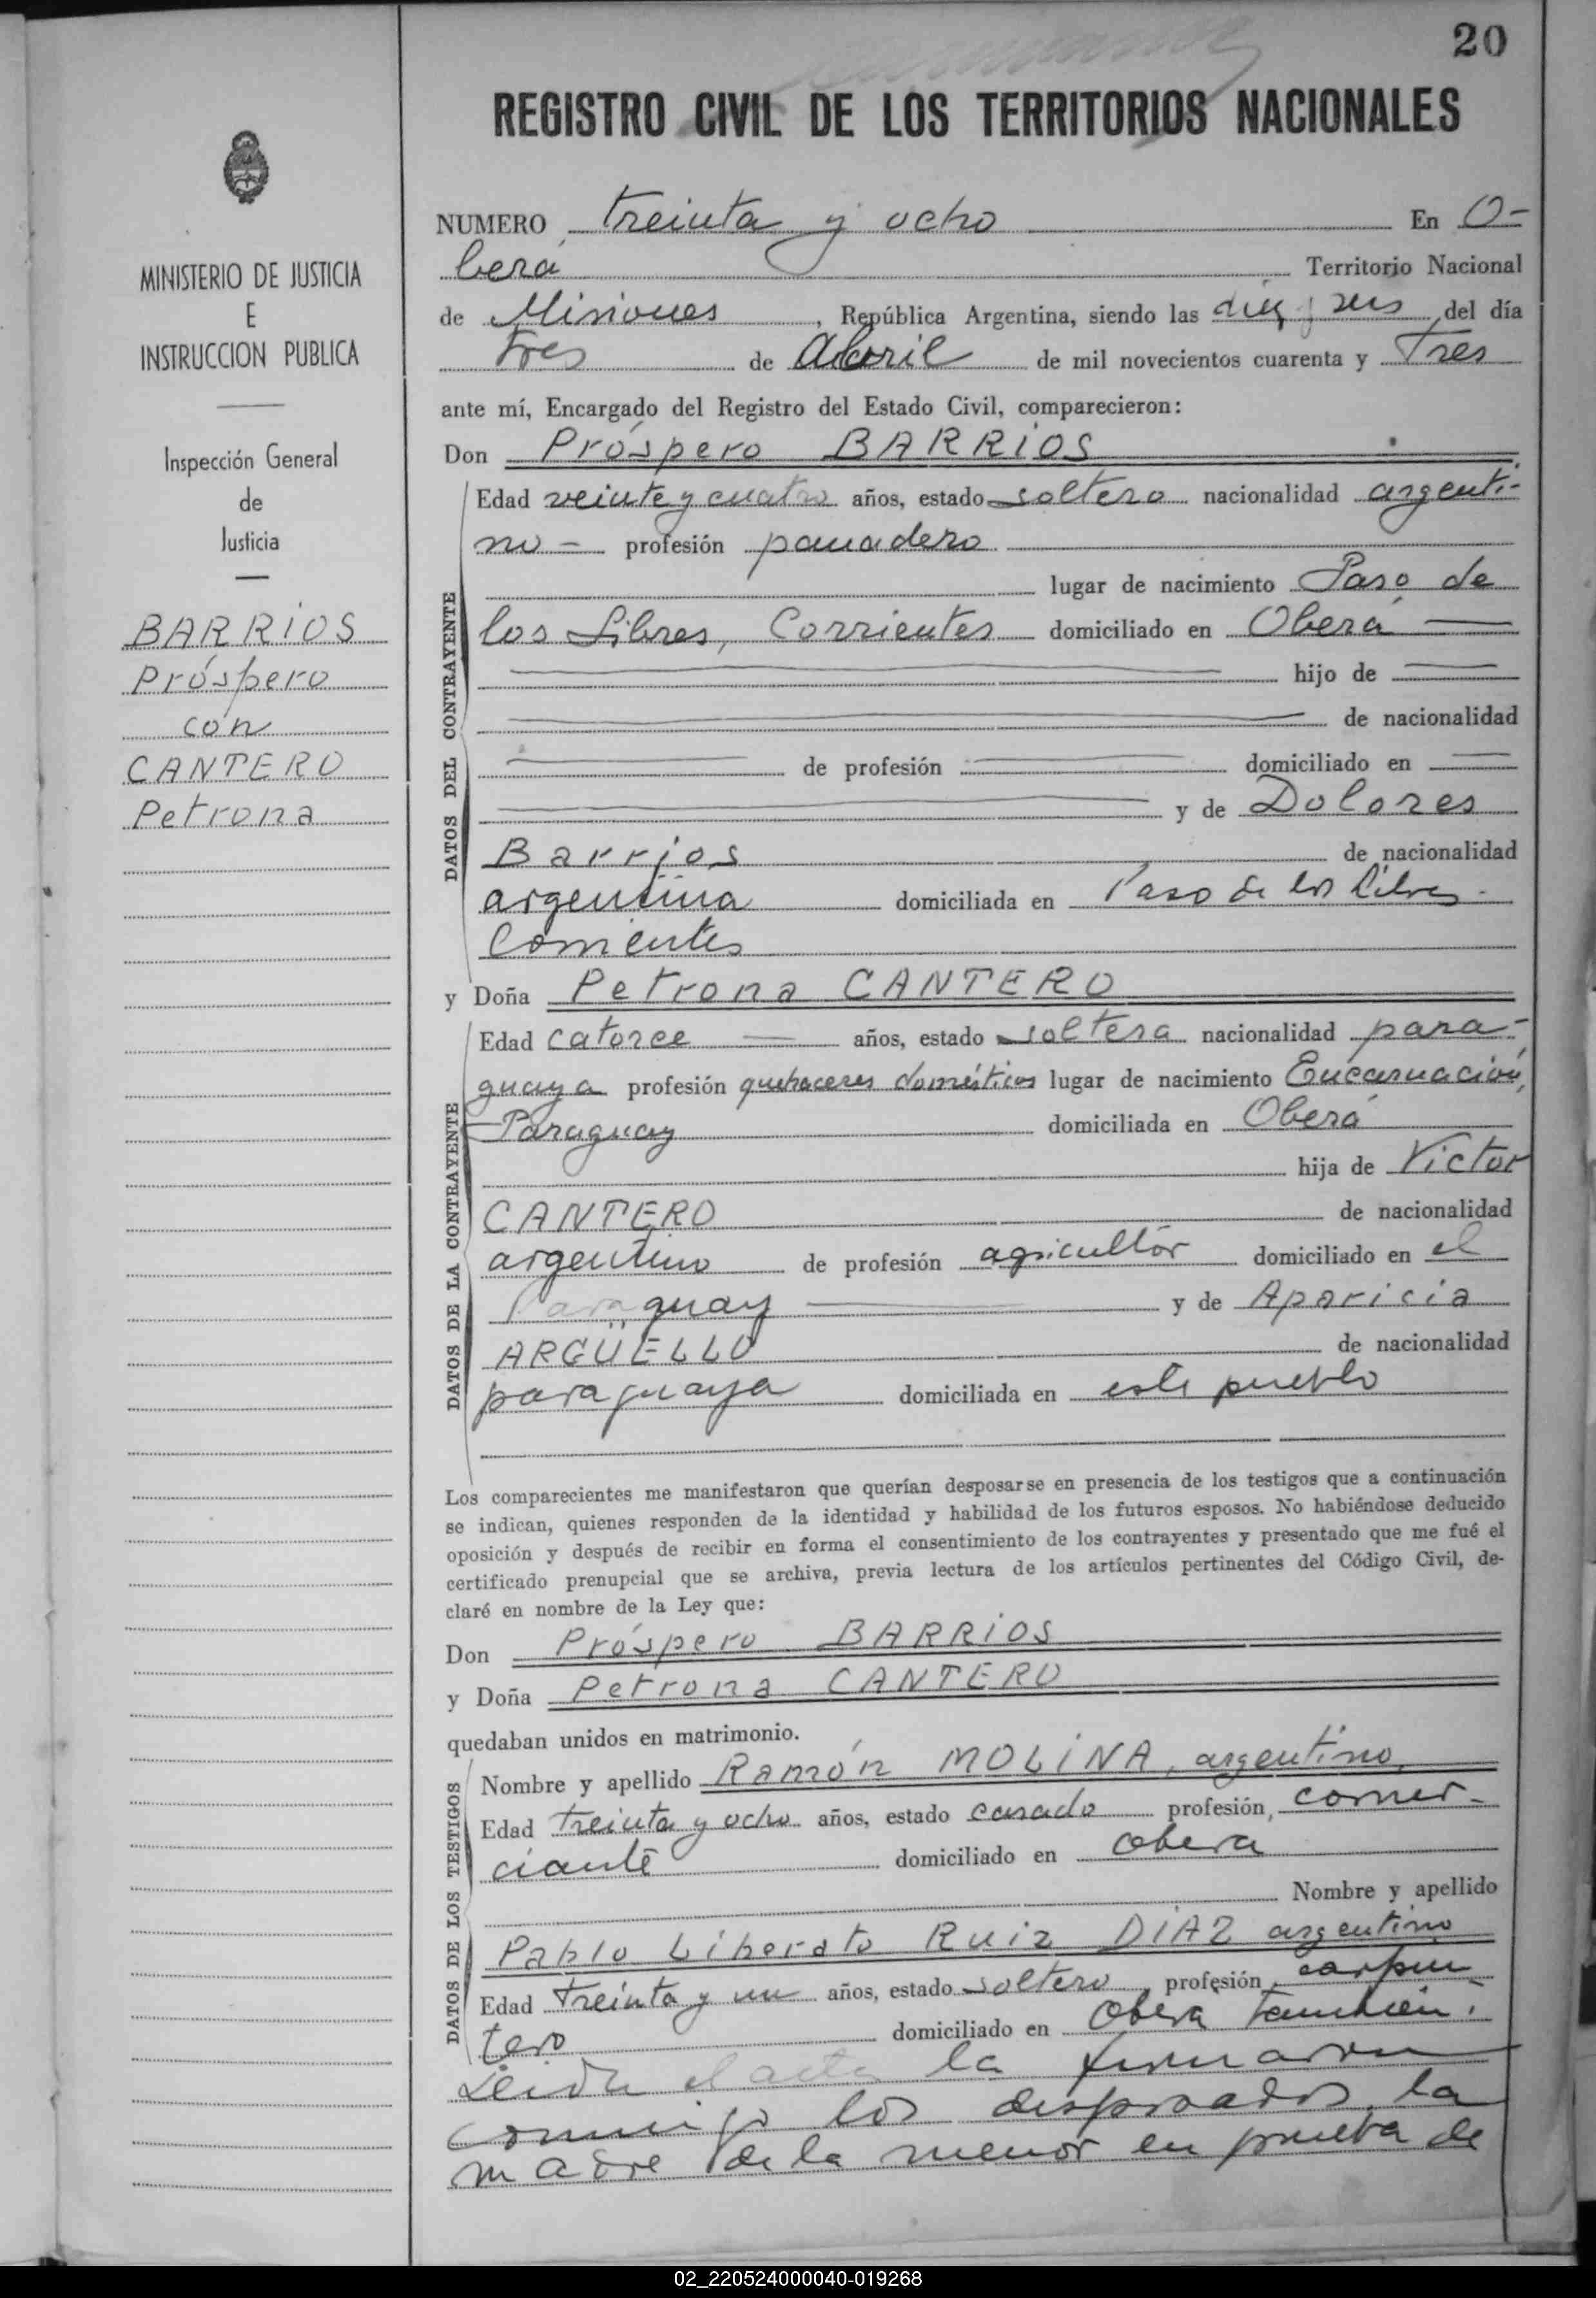 20
REGISTRO CIVIL DE LOS TERRITORIOS NACIONALES
MINISTERIO DE JUSTICIA
E
INSTRUCCION PUBLICA
Inspección General
de
Justicia
BARRIOS
Próspero
con
CANTERO
Petrona
NUMERO treinta y ocho En O-
berá Territorio Nacional
de Misiones, República Argentina, siendo las diez y seis del día
tres de Abril de mil novecientos cuarenta y tres
ante mí, Encargado del Registro del Estado Civil, comparecieron:
Don Próspero BARRIOS
DATOS DEL CONTRAYENTE
Edad veinte y cuatro años, estado soltero nacionalidad argenti-
no - profesión panadero
lugar de nacimiento Paso de
los Libres, Corrientes domiciliado en Oberá
hijo de
de nacionalidad
de profesión domiciliado en
y de Dolores
Barrios de nacionalidad
argentina domiciliada en Paso de los Libres -
Corrientes
y Doña Petrona CANTERO
DATOS DE LA CONTRAYENTE
Edad catorce años, estado soltera nacionalidad para-
guaya profesión quehaceres domésticos lugar de nacimiento Encarnación,
Paraguay domiciliada en Oberá
hija de Victor
CANTERO de nacionalidad
argentino de profesión agricultor domiciliado en el
Paraguay y de Aparicia
ARGÜELLO de nacionalidad
paraguaya domiciliada en este pueblo
Los comparecientes me manifestaron que querían desposarse en presencia de los testigos que a continuación
se indican, quienes responden de la identidad y habilidad de los futuros esposos. No habiéndose deducido
oposición y después de recibir en forma el consentimiento de los contrayentes y presentado que me fué el
certificado prenupcial que se archiva, previa lectura de los artículos pertinentes del Código Civil, de-
claré en nombre de la Ley que:
Don Próspero BARRIOS
y Doña Petrona CANTERO
quedaban unidos en matrimonio.
DATOS DE LOS TESTIGOS
Nombre y apellido Ramón MOLINA, argentino,
Edad treinta y ocho años, estado casado profesión, comer-
ciante domiciliado en Oberá
Nombre y apellido
Pablo Liberato Ruiz DIAZ argentino
Edad treinta y un años, estado soltero profesión carpin
tero domiciliado en Oberá también.
Leída el acta la firmaron
conmigo los desposados, la
madre de la menor en prueba de
02_220524000040-019268